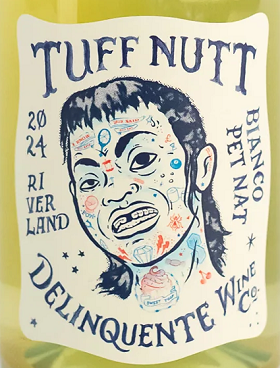 TUFF NUTT
20
24
RI
VER
LAND
BIANCO
PET NAT
DELINQUENTE WINE
Co.